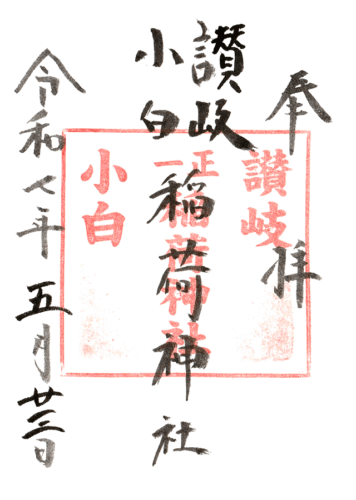 奉拝
讃岐
小白
稲荷神社
令和七年五月廿三日
讃岐
正一
稲荷神社
小白